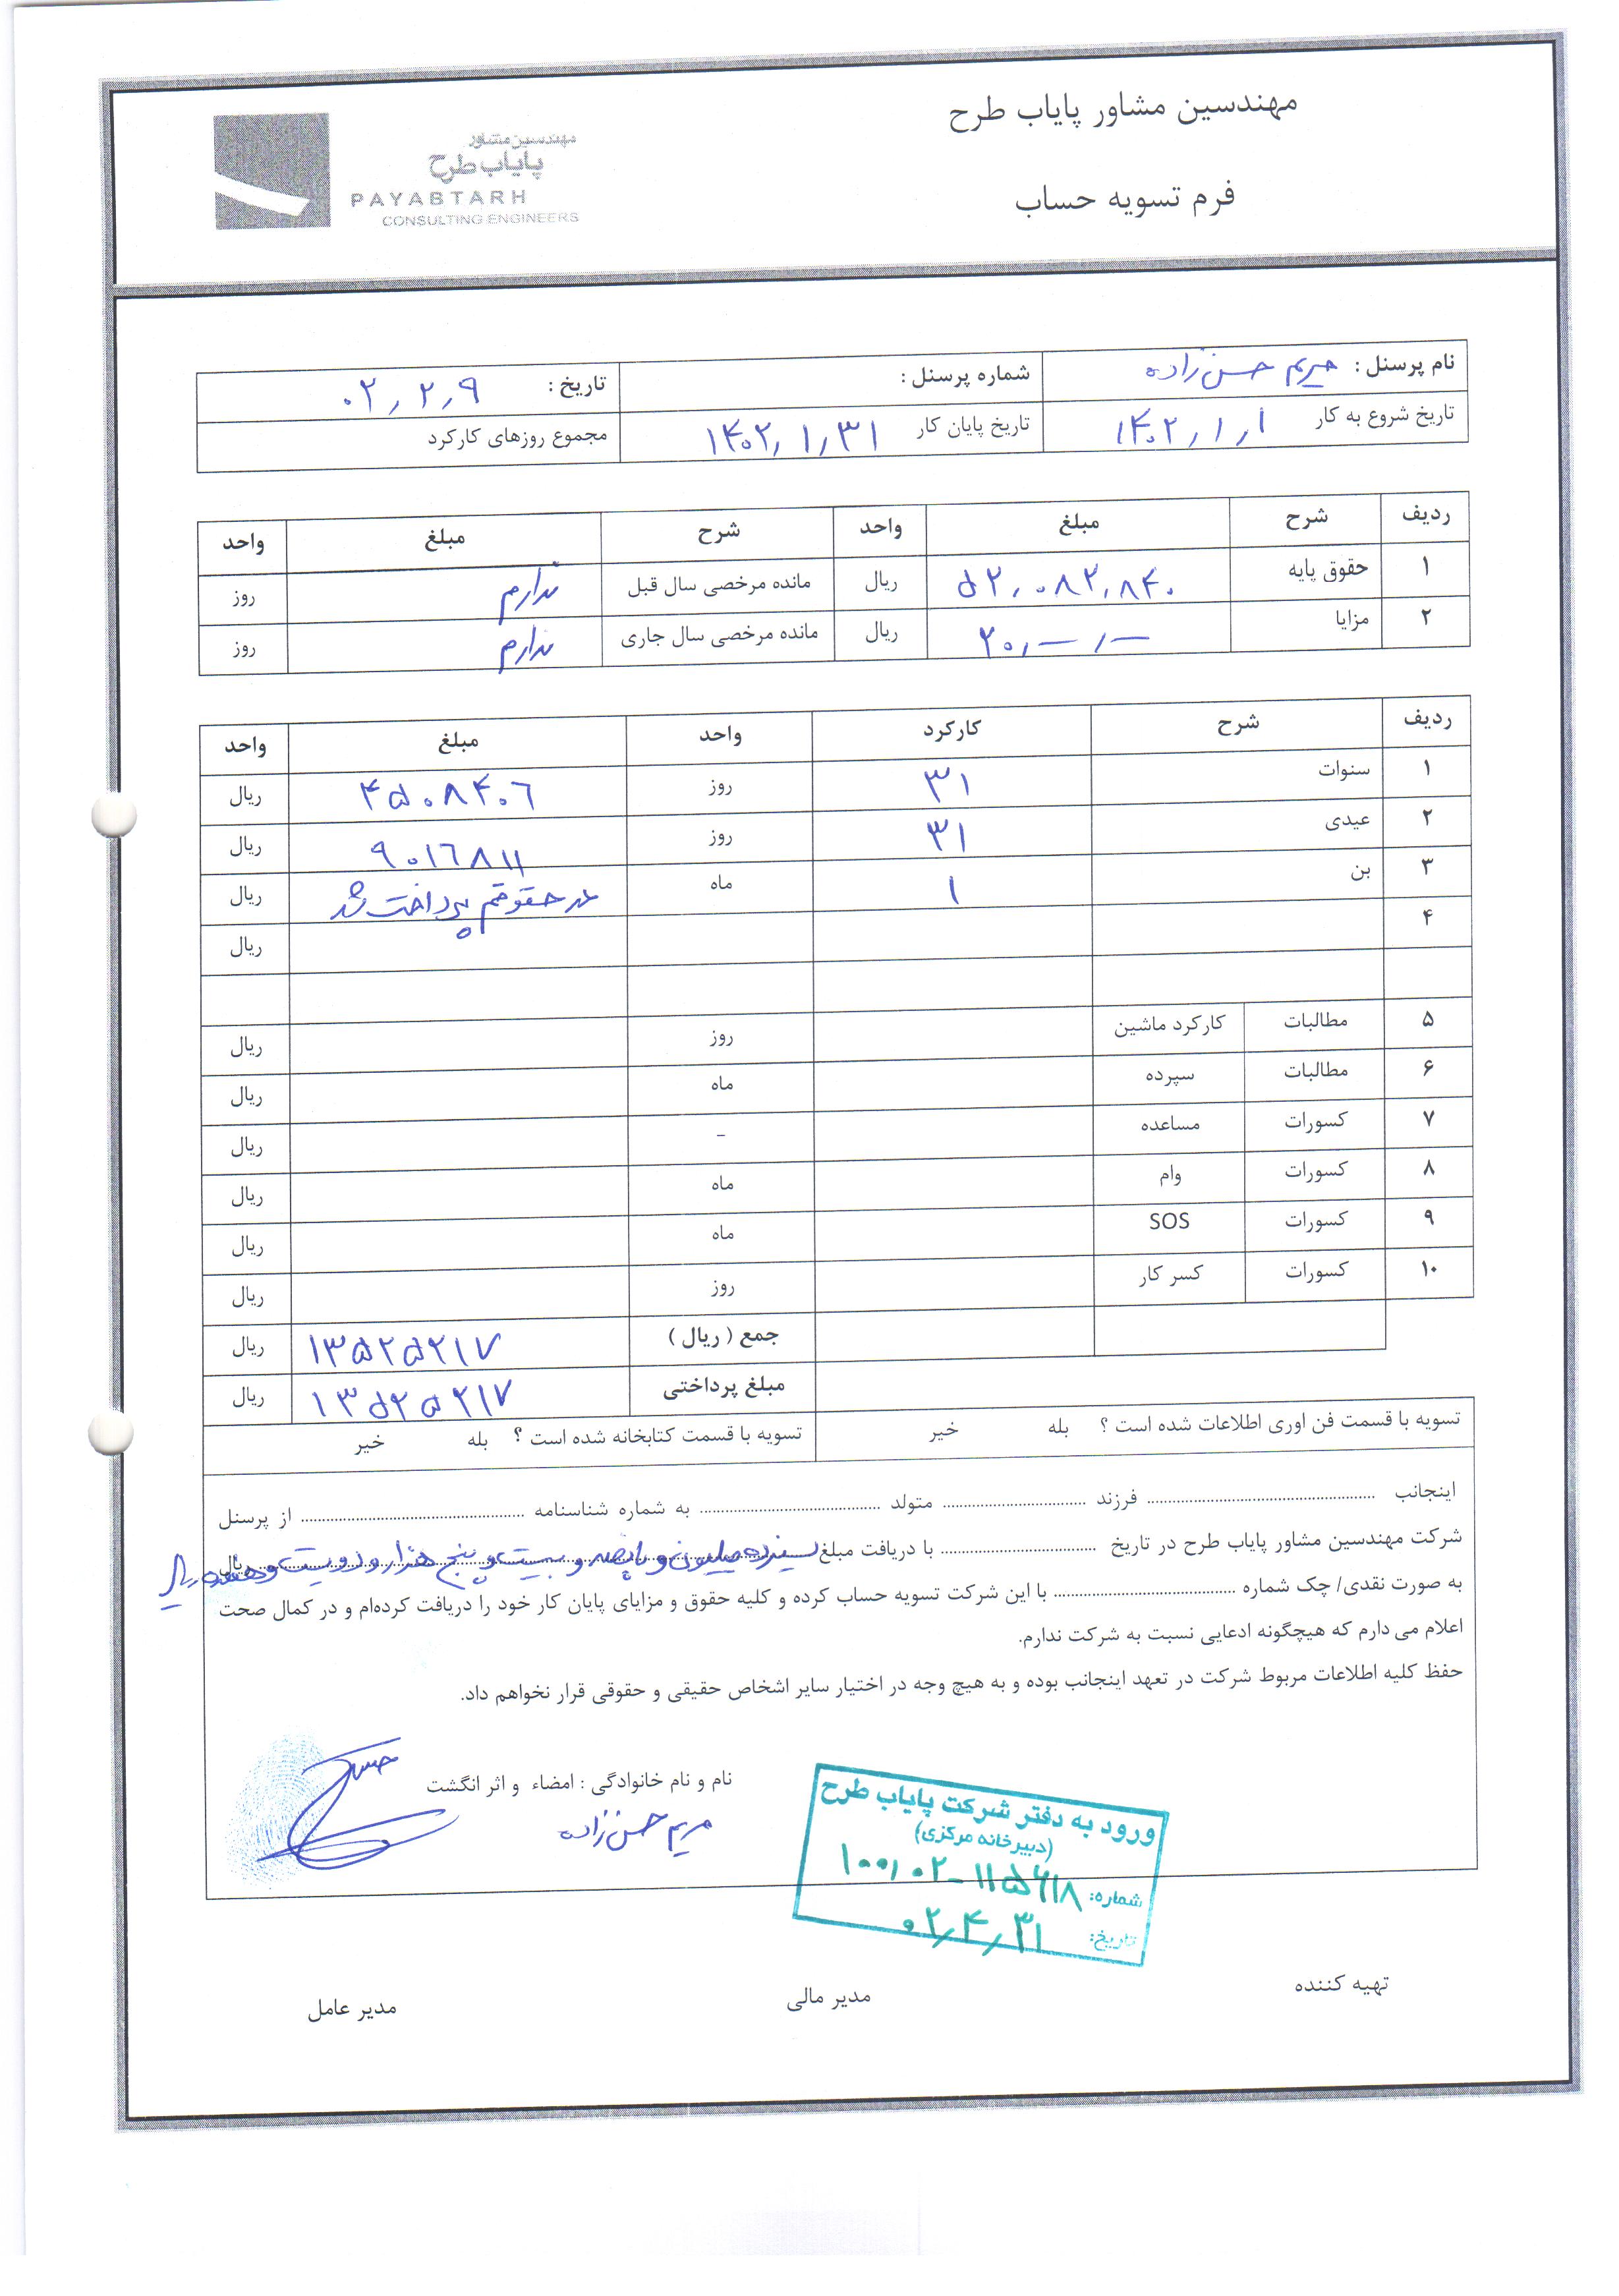 مهندسین مشاور پایاب طرح
مهندسین مشاور
پایاب طرح
PAYABTARH
CONSULTING ENGINEERS
فرم تسویه حساب
نام پرسنل : مریم حسن زاده شماره پرسنل : تاریخ : ۰۲٫۲٫۹
تاریخ شروع به کار ۱۴۰۲٫۱٫۱ تاریخ پایان کار ۱۴۰۲٫۱٫۳۱ مجموع روزهای کارکرد
ردیف شرح مبلغ واحد شرح مبلغ واحد
۱ حقوق پایه ۵۲٫۰۸۲٫۸۴۰ ریال مانده مرخصی سال قبل ندارم روز
۲ مزایا ۲۰٫—٫— ریال مانده مرخصی سال جاری ندارم روز
ردیف شرح کارکرد واحد مبلغ واحد
۱ سنوات ۳۱ روز ۴۵۰۸۴۰۶ ریال
۲ عیدی ۳۱ روز ۹۰۱۶۸۱۱ ریال
۳ بن ۱ ماه در حقوقم پرداخت شد ریال
۴ ریال
۵ مطالبات کارکرد ماشین روز ریال
۶ مطالبات سپرده ماه ریال
۷ کسورات مساعده – ریال
۸ کسورات وام ماه ریال
۹ کسورات SOS ماه ریال
۱۰ کسورات کسر کار روز ریال
جمع ( ریال ) ۱۳۵۲۵۲۱۷ ریال
مبلغ پرداختی ۱۳۵۲۵۲۱۷ ریال
تسویه با قسمت فن اوری اطلاعات شده است ؟ بله خیر تسویه با قسمت کتابخانه شده است ؟ بله خیر
اینجانب ........ فرزند ........ متولد ........ به شماره شناسنامه ........ از پرسنل
شرکت مهندسین مشاور پایاب طرح در تاریخ ........ با دریافت مبلغ سیزده میلیون و پانصد و بیست و پنج هزار و دویست و هفده ریال ریال
به صورت نقدی/ چک شماره ........ با این شرکت تسویه حساب کرده و کلیه حقوق و مزایای پایان کار خود را دریافت کرده‌ام و در کمال صحت
اعلام می دارم که هیچگونه ادعایی نسبت به شرکت ندارم.
حفظ کلیه اطلاعات مربوط شرکت در تعهد اینجانب بوده و به هیچ وجه در اختیار سایر اشخاص حقیقی و حقوقی قرار نخواهم داد.
نام و نام خانوادگی : امضاء و اثر انگشت
مریم حسن زاده
ورود به دفتر شرکت پایاب طرح
(دبیرخانه مرکزی)
شماره: ۱۰۰٫۰۲-۱۱۵۶۱۸
تاریخ: ۰۲٫۴٫۳۱
تهیه کننده مدیر مالی مدیر عامل